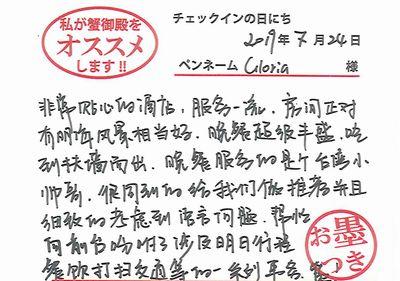 私が蟹御殿を
オススメ
します!!
チェックインの日にち
2019年7月24日
ペンネーム Gloria 様
非常贴心的酒店,服务一流,房间正对
有明海风景相当好。晚餐超级丰盛,吃
到扶墙而出。晚餐服务的是个台湾小
帅哥,很周到的给我们做推荐并且
细致的考虑到语言问题,帮忙
向前台吩咐了次日明日行程
餐饮打扫交通等的一系列事务。
お墨
つき